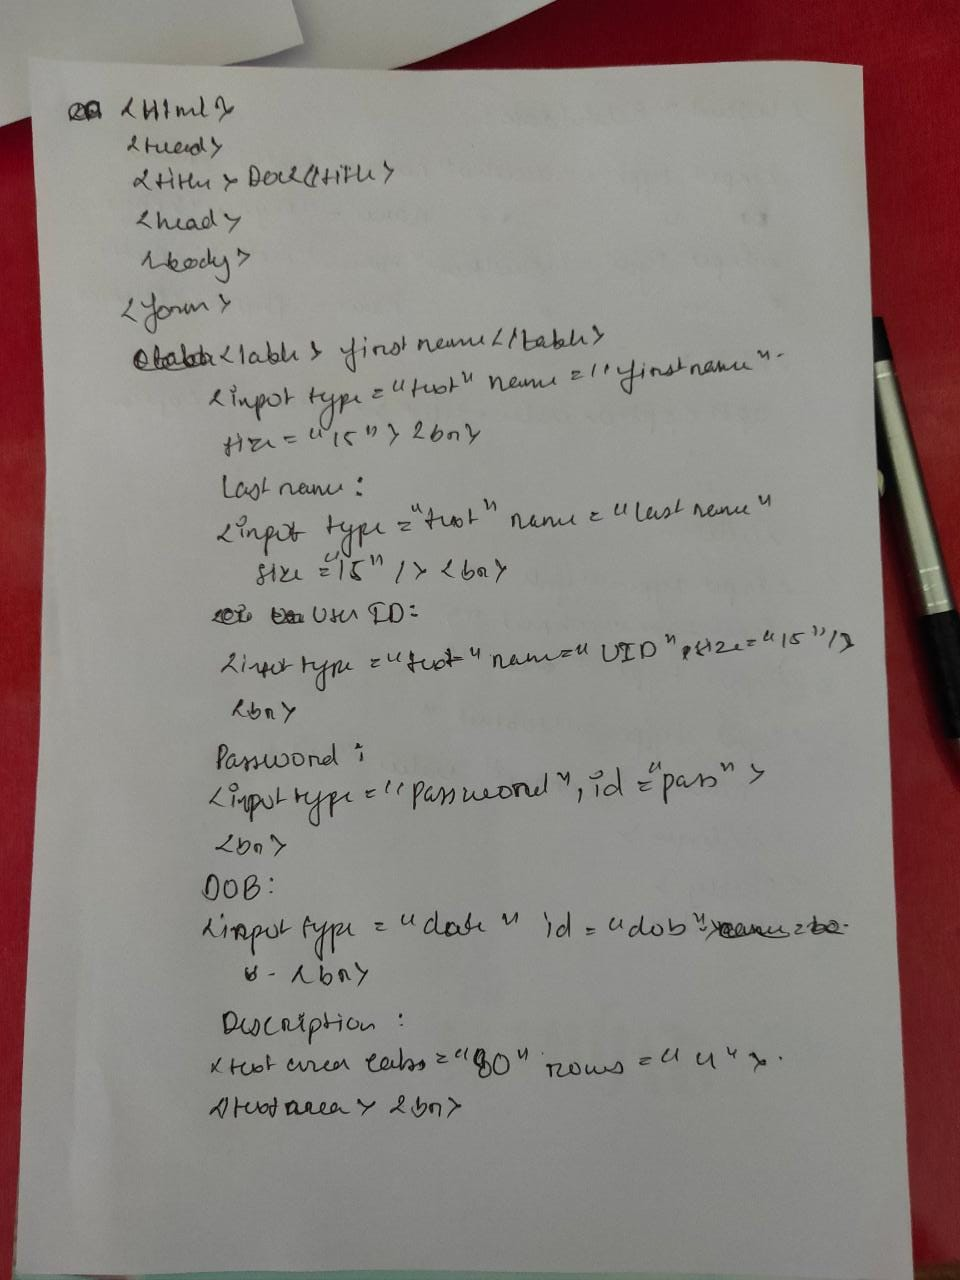 <Html>
<head>
<title> Doc</title>
<head>
<body>
<form>
<lable> first name</lable>
<input type="text" name="firstname"
size="15"> <br>
Last name:
<input type="text" name="last name"
size="15" /> <br>
User ID:
<input type="text" name="UID", size="15"/>
<br>
Password:
<input type="password", id="pass">
<br>
DOB:
<input type="date" id="dob">
<br>
Description:
<text area cols="80" rows="4">
</textarea> <br>